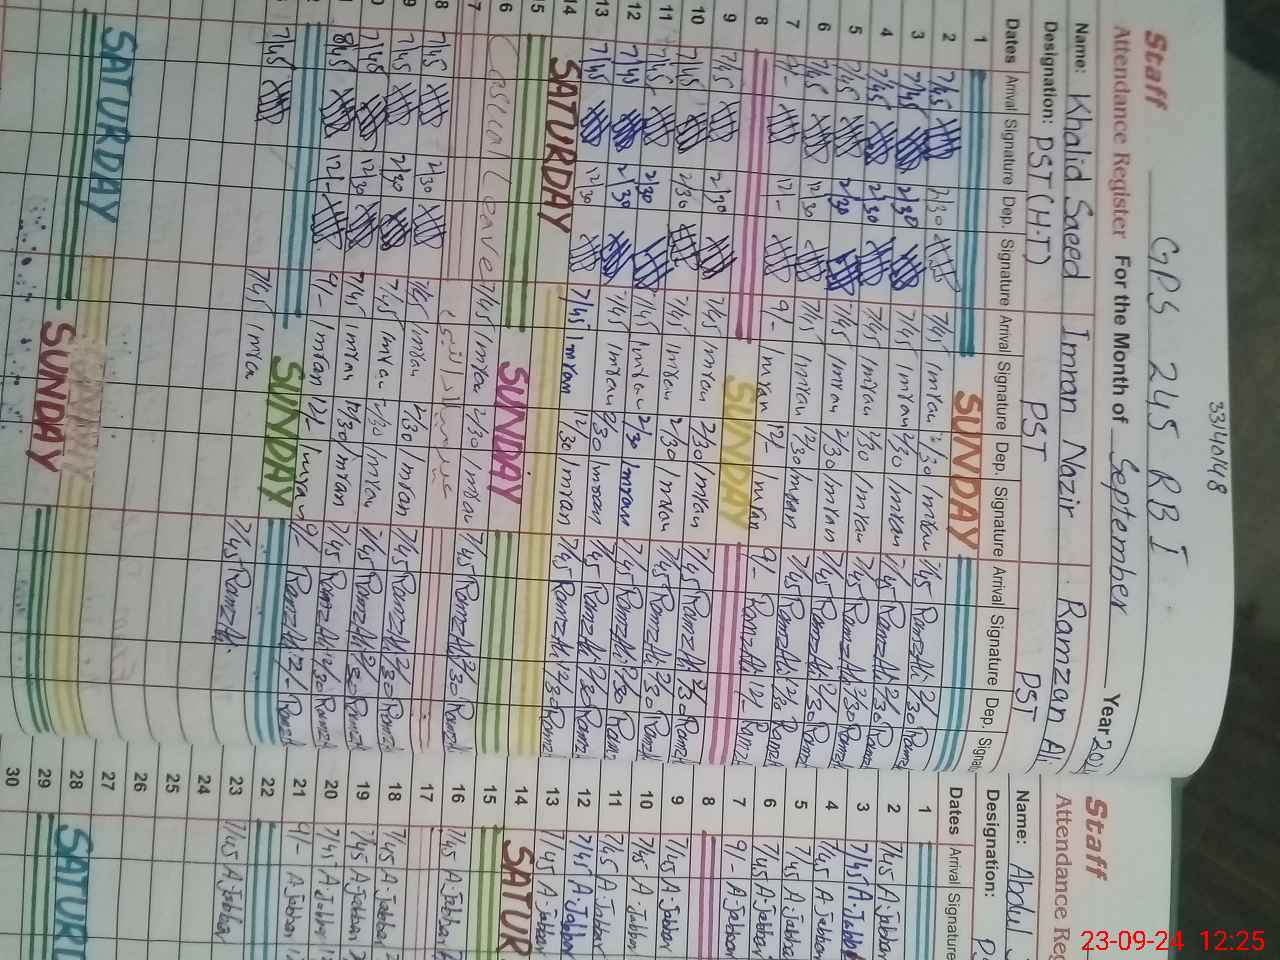 3314048
Staff GPS 245 RB I
Attendance Register For the Month of September Year 2024
Name: Khalid Saeed Imran Nazir Ramzan Ali
Designation: PST (H.T) PST PST
Dates Arrival Signature Dep. Signature Arrival Signature Dep. Signature Arrival Signature Dep. Signatu
1 SUNDAY
2 7/45 2/30 7/45 Imran 2/30 Imran 7/45 RamzAli 2/30 Ramz
3 7/45 2/30 7/45 Imran 2/30 Imran 7/45 RamzAli 2/30 Ramz
4 7/45 2/30 7/45 Imran 2/30 Imran 7/45 RamzAli 2/30 Ramz
5 7/45 2/30 7/45 Imran 2/30 Imran 7/45 RamzAli 2/30 Ramz
6 7/45 12/30 7/45 Imran 12/30 Imran 7/45 RamzAli 12/30 Ramz
7 9/- 12/- 9/- Imran 12/- Imran 9/- RamzAli 12/- Ramz
8 SUNDAY
9 7/45 2/30 7/45 Imran 2/30 Imran 7/45 RamzAli 2/30 Ramz
10 7/45 2/30 7/45 Imran 2/30 Imran 7/45 RamzAli 2/30 Ramz
11 7/45 2/30 7/45 Imran 2/30 Imran 7/45 RamzAli 2/30 Ramz
12 7/45 2/30 7/45 Imran 2/30 Imran 7/45 RamzAli 2/30 Ramz
13 7/45 12/30 7/45 Imran 12/30 Imran 7/45 RamzAli 12/30 Ramz
14 SATURDAY
15 SUNDAY
16 Casual Leave 7/45 Imran 2/30 Imran 7/45 RamzAli 2/30 Ramz
17
18 7/45 2/30 7/45 Imran 2/30 Imran 7/45 RamzAli 2/30 Ramz
19 7/45 2/30 7/45 Imran 2/30 Imran 7/45 RamzAli 2/30 Ramz
20 7/45 12/30 7/45 Imran 12/30 Imran 7/45 RamzAli 12/30 Ramz
8/45 12/- 9/- Imran 12/- Imran 9/- RamzAli 12/- Ramz
SUNDAY
7/45 7/45 Imran 7/45 RamzAli
SATURDAY
SUNDAY
Staff
Attendance Reg
Name: Abdul
Designation: P
Dates Arrival Signature
1
2 7/45 A.Jabbar
3 7/45 A.Jabb
4 7/45 A.Jabbar
5 7/45 A.Jabba
6 7/45 A.Jabbar
7 9/- A.Jabbar
8
9 7/45 A.Jabbar
10 7/45 A.Jabbar
11 7/45 A.Jabbar
12 7/45 A.Jabbar
13 7/45 A.Jabbar
14 SATUR
15
16 7/45 A.Jabbar
17
18 7/45 A.Jabbar
19 7/45 A.Jabbar
20 7/45 A.Jabbar
21 9/- A.Jabbar
22
23 7/45 A.Jabbar
24
25
26
27
28 SATUR
29
30
23-09-24 12:25